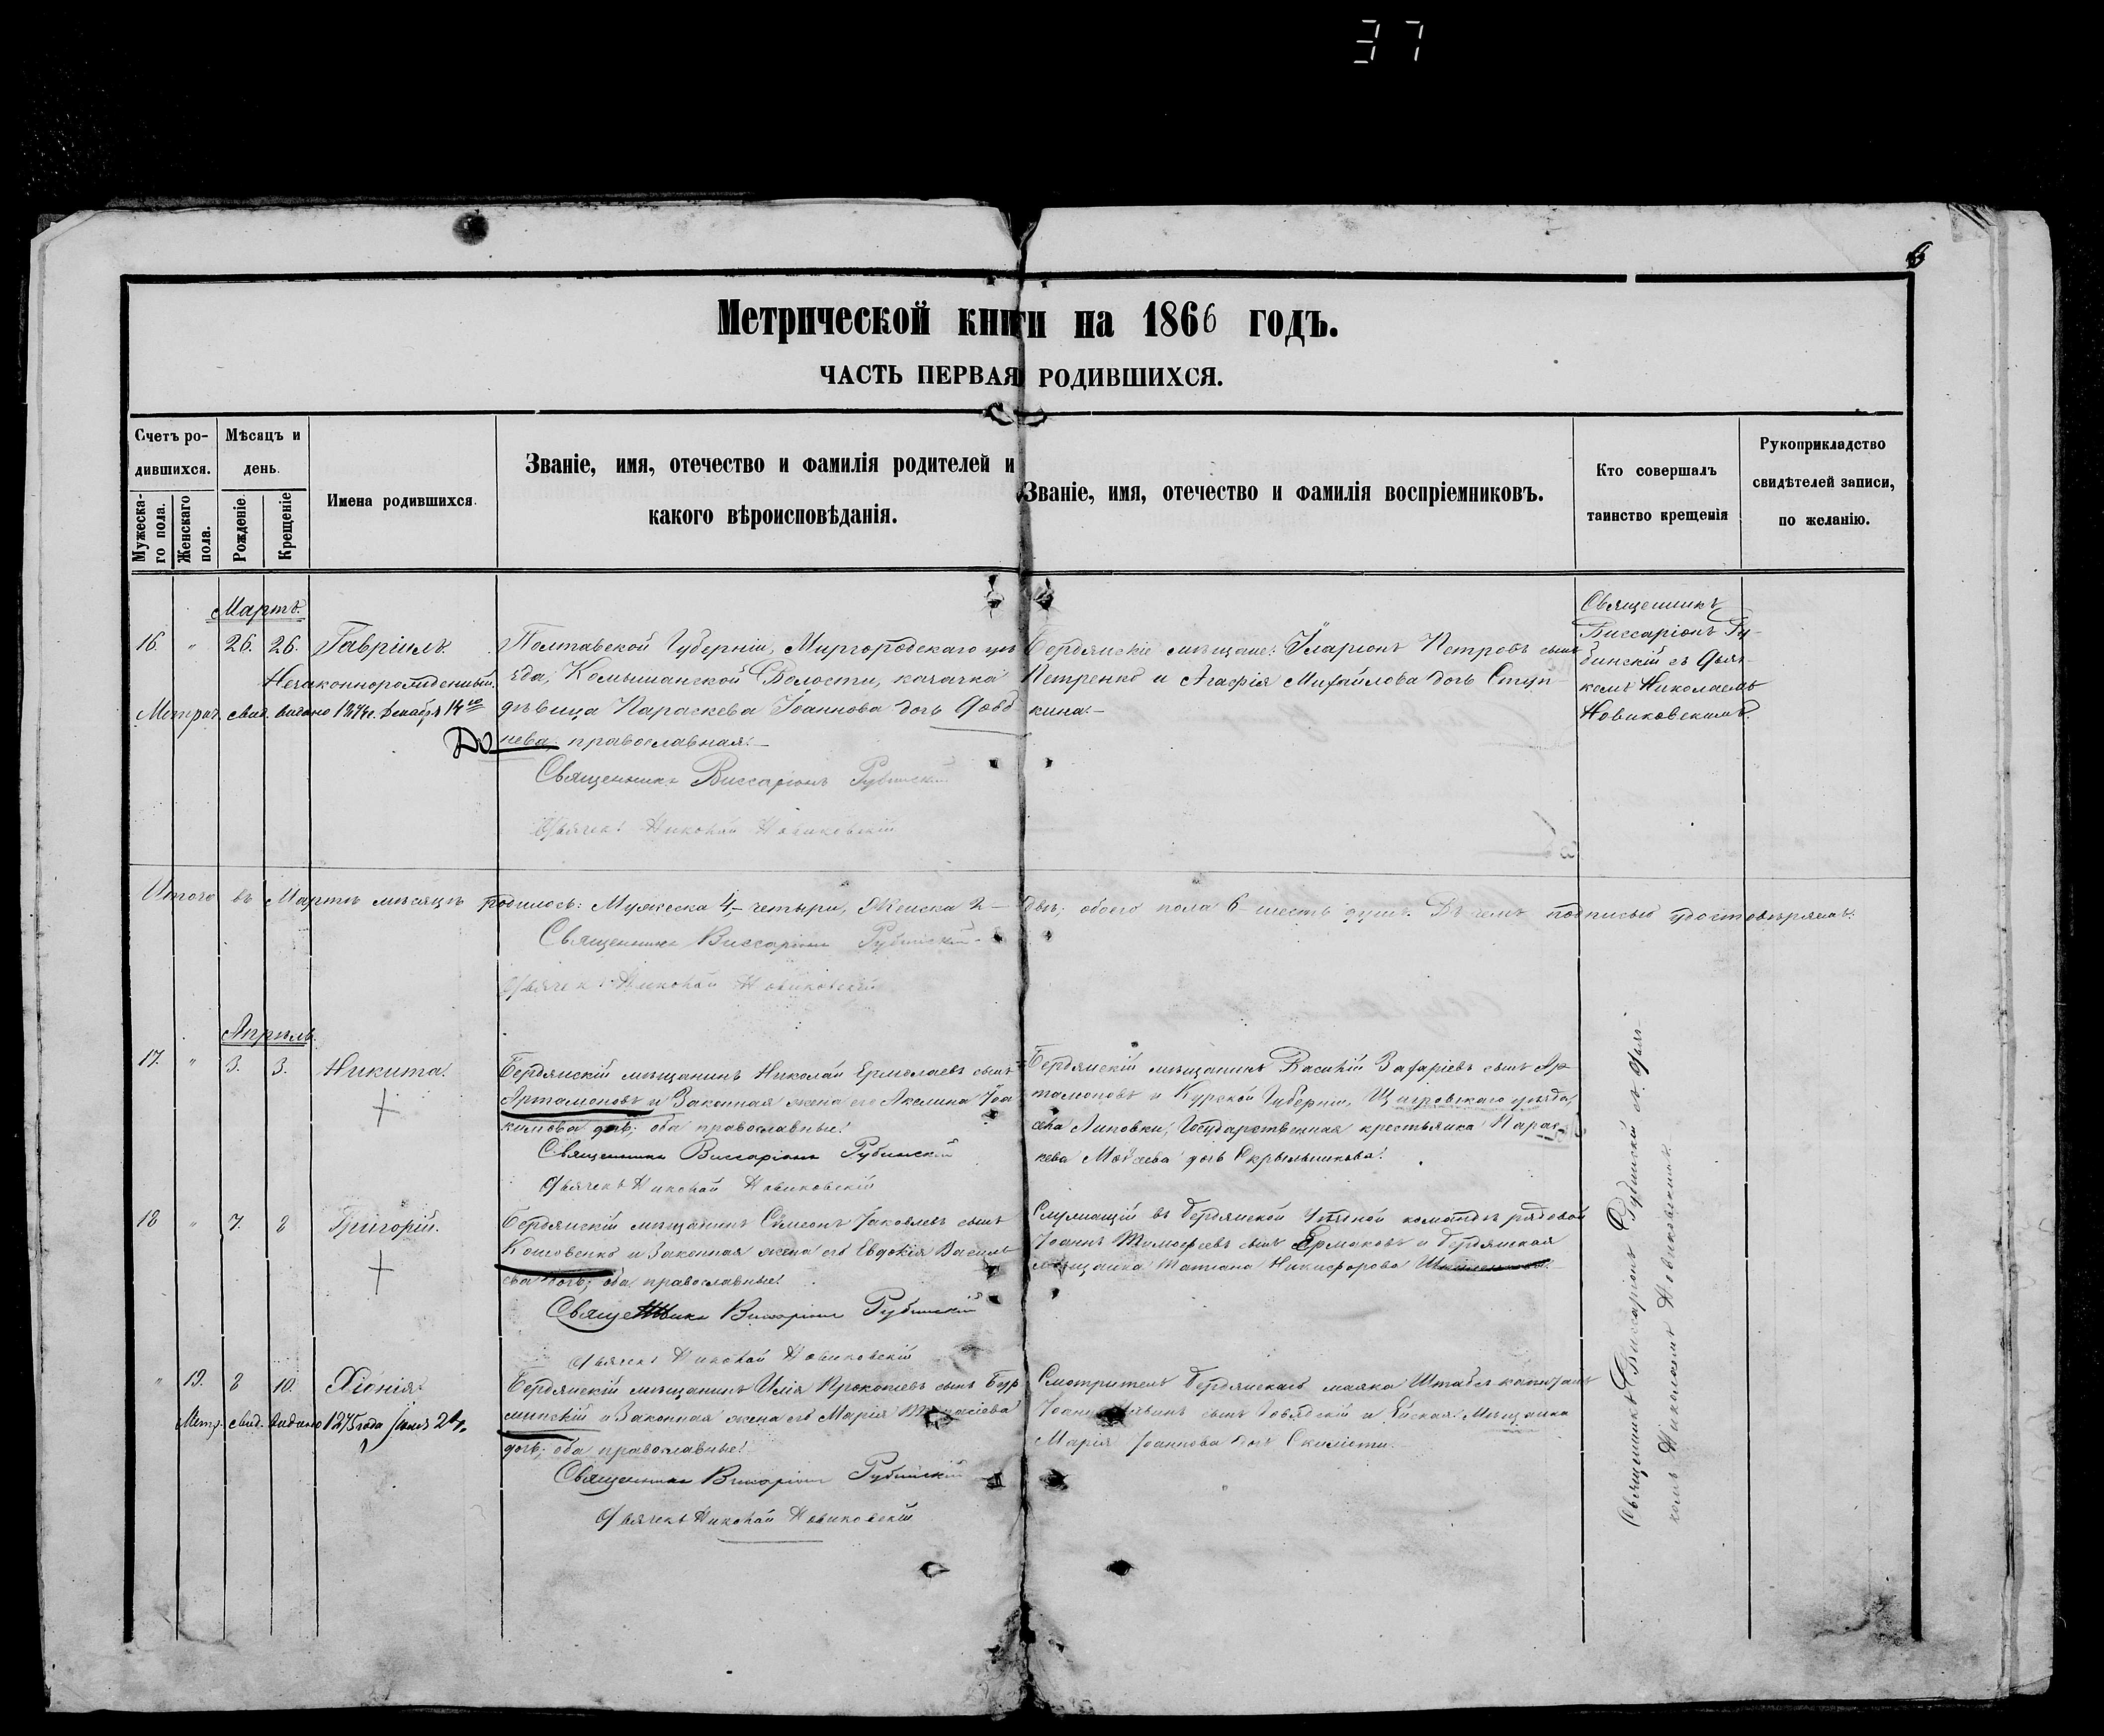 37
6
Метрической книги на 1866 годъ.
ЧАСТЬ ПЕРВАЯ РОДИВШИХСЯ.
Счетъ ро-
дившихся.
Мужеска-
го пола.
Женскаго
пола.
Мѣсяцъ и
день.
Рожденіе
Крещеніе
Имена родившихся.
Званіе, имя, отечество и фамилія родителей и
какого вѣроисповѣданія.
Званіе, имя, отечество и фамилія воспріемниковъ.
Кто совершалъ
таинство крещенія
Рукоприкладство
свидѣтелей записи,
по желанію.
Мартъ.
16. " 26. 26. Гавріилъ
Незаконнорожденный.
Метрич. свид. выдано декабря 14го
Полтавской Губерніи, Миргородскаго уѣ
зда, Комышанской Волости, казачка
дѣвица Параскева Іоаннова дочь Довб
нева, православная.
Священникъ Виссаріонъ Рубинскій
Дьячекъ Николай Новиковскій
Бердянскіе мѣщане: Иларіонъ Петровъ сынъ
Петренко и Агафія Михайлова дочь Ступ-
кина.
Священникъ
Виссаріонъ Ру-
бинскій съ дьяч-
комъ Николаемъ
Новиковскимъ.
Итого въ Мартѣ мѣсяцѣ родилось: Мужеска 4 четыри, Женска 2 двѣ; обоего пола 6 шесть душъ. Въ чемъ подписью удостовѣряемъ:
Священникъ Виссаріонъ Рубинскій
Дьячекъ Николай Новиковскій
Апрѣль.
17. " 3. 3. Никита.
Бердянскій мѣщанинъ Николай Ермолаевъ сынъ
Артамоновъ и Законная жена его Акилина Іоа
кимова дочь; оба православные.
Священникъ Виссаріонъ Рубинскій
Дьячекъ Николай Новиковскій
Бердянскій мѣщанинъ Василій Захаріевъ сынъ Ар
тамоновъ и Курской Губерніи, Щигровскаго уѣзда,
села Липовки, Государственная крестьянка Парас
кева дочь Скрыльникова.
18 " 7. 8 Григорій.
Бердянскій мѣщанинъ Сѵмеонъ Іаковлевъ сынъ
Кошовенко и Законная жена его Евдокія Василь
ева дочь; оба православные.
Священникъ Виссаріонъ Рубинскій
Дьячекъ Николай Новиковскій
Служащій въ Бердянской Уѣздной командѣ рядовой
Іоаннъ Тимофеевъ сынъ Ермаковъ и Бердянская
мѣщанка Татіана Никифорова
" 19. 8 10. Хіонія.
Метр. свид. выдано 1875 года
Бердянскій мѣщанинъ Илія Прокопіевъ сынъ Бур
минскій и Законная жена его Марія
дочь; оба православные.
Священникъ Виссаріонъ Рубинскій
Дьячекъ Николай Новиковскій
Смотритель Бердянскаго маяка Штабсъ-капитанъ
Іоаннъ сынъ и Ейская Мѣщанка
Марія Іоаннова дочь
Священникъ Виссаріонъ Рубинскій съ дьяч-
комъ Николаемъ Новиковскимъ.